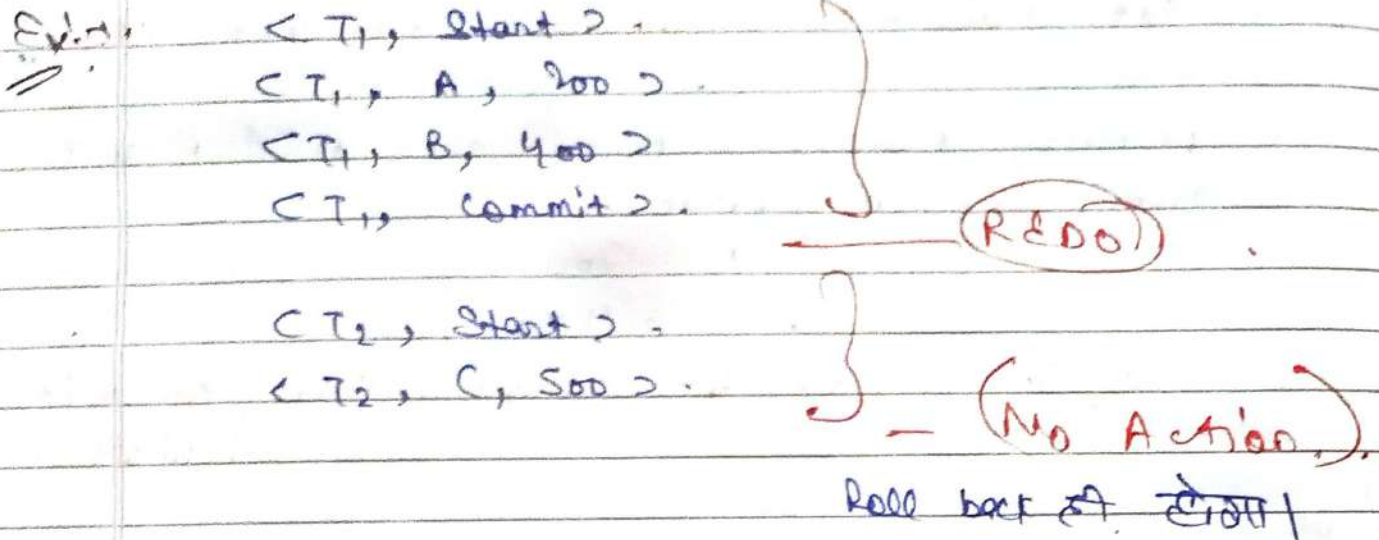 < T1, Start >.
< T1, A, 200 >.
< T1, B, 400 >
< T1, Commit >.
REDO
< T2, Start >.
< T2, C, 500 >.
- (No Action.).
Roll back ही होगा।